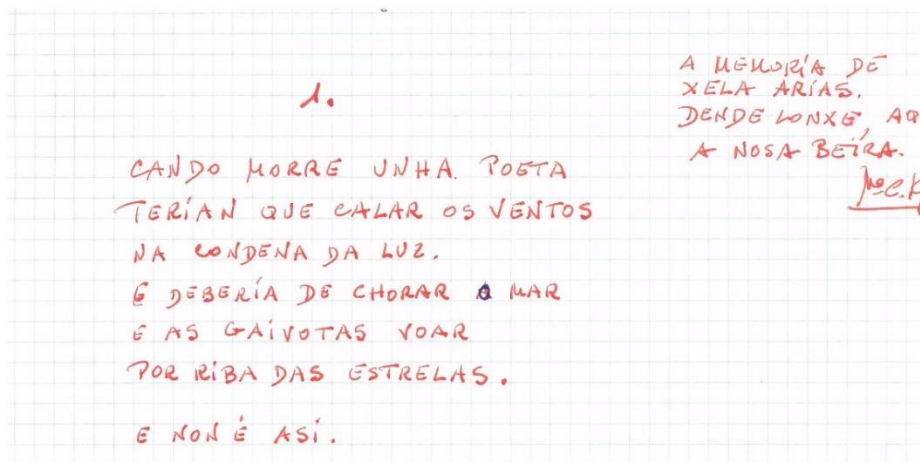 1.
A MEMORÍA DE
XELA ARÍAS.
DENDE LONXE, AQ
A NOSA BEÍRA.
CANDO MORRE UNHA POETA
TERÍAN QUE CALAR OS VENTOS
NA CONDENA DA LUZ.
E DEBERÍA DE CHORAR O MAR
E AS GAIVOTAS VOAR
POR RIBA DAS ESTRELAS.
E NON É ASÍ.